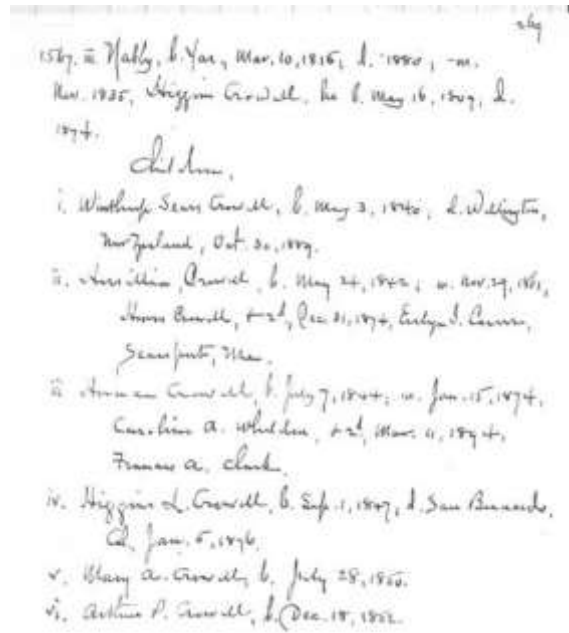 269
1567. iii Nabby, b. Yar., Mar. 10, 1816, d. 1880, m.
Nov. 1835, Higgins Crowell, he b. May 16, 1809, d.
1874.
Children.
i. Winthrop Sears Crowell, b. May 3, 1840, d. Wellington,
New Zealand, Oct. 30, 1889.
ii. Crowell, b. May 24, 1842, m. Nov. 29, 1861,
Crowell, + 2d, Dec. 31, 1874, Evelyn
Searsport, Me.
iii Crowell, b. July 7, 1844, m. Jan. 15, 1874,
Caroline A. Whelden, + 2d, Mar. 11, 1894,
Frances A. Clark.
iv. Higgins L. Crowell, b. Sep. 1, 1847, d. San Bernardo,
Cal. Jan. 5, 1876.
v. Mary A. Crowell, b. July 28, 1850.
vi. Arthur P. Crowell, b. Dec. 18, 1852.